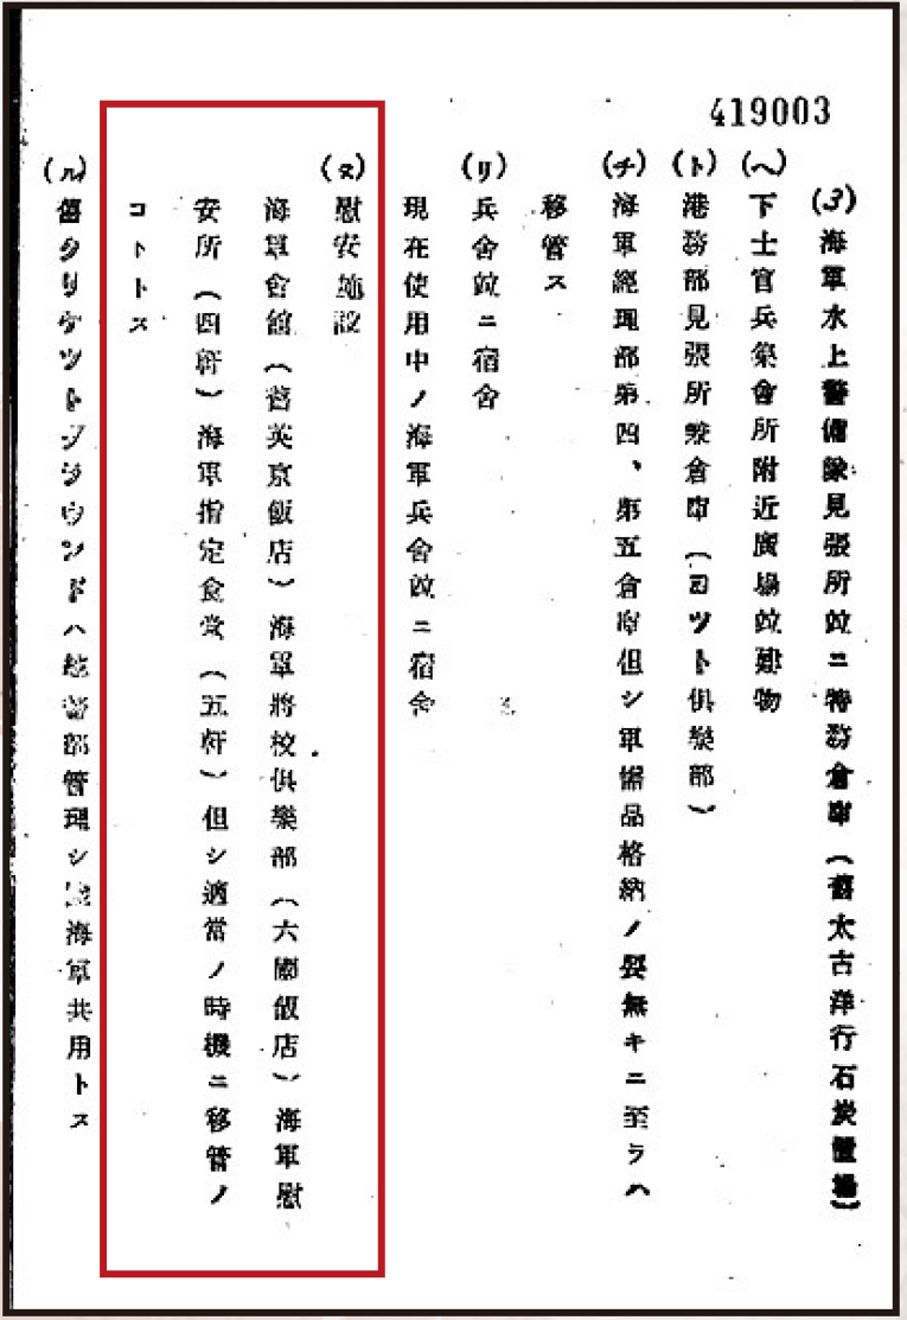 419003
(3) 海軍水上警備隊見張所竝ニ特務倉庫(舊太古洋行石炭置場)
(ヘ) 下士官兵集會所附近廣場竝建物
(ト) 港務部見張所兼倉庫(ヨツト俱樂部)
(チ) 海軍經理部第四、第五倉庫但シ軍需品格納ノ要無キニ至ラハ
移管ス
(リ) 兵舍竝ニ宿舍
現在使用中ノ海軍兵舍竝ニ宿舍
(ヌ) 慰安施設
海軍會館(舊英京飯店)海軍將校俱樂部(六國飯店)海軍慰
安所(四軒)海軍指定食堂(五軒)但シ適當ノ時機ニ移管ノ
コトトス
(ル) 舊クリケツトグラウンドハ總督部管理シ陸海軍共用トス